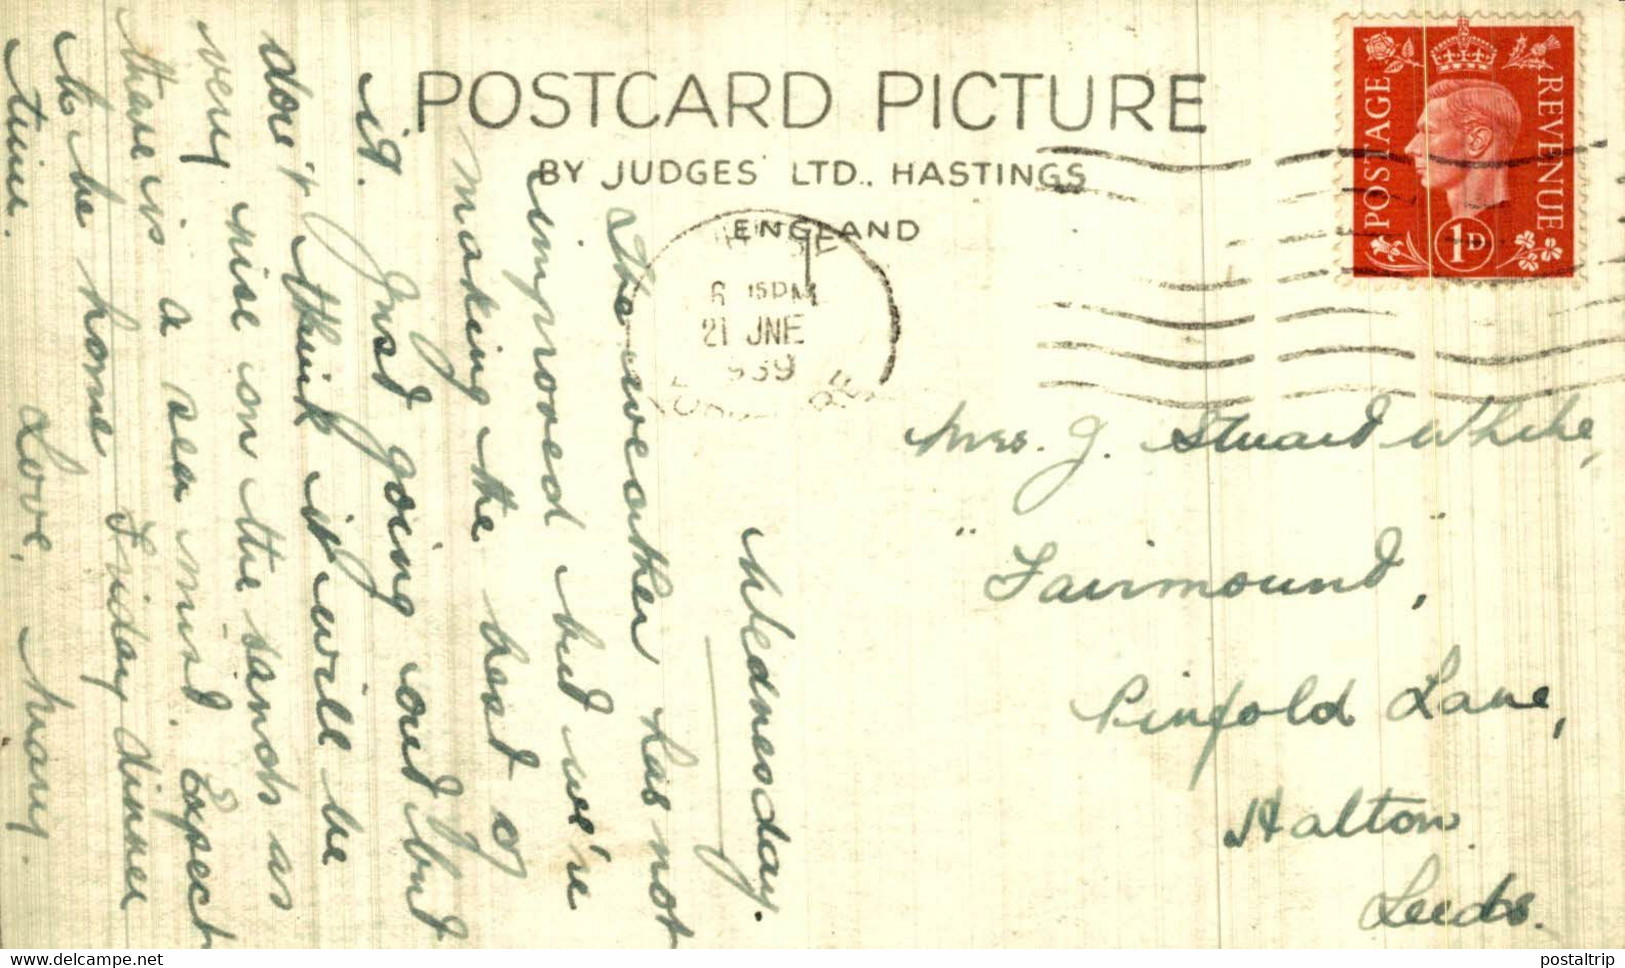 POSTCARD PICTURE
BY JUDGES LTD., HASTINGS
ENGLAND
POSTAGE
REVENUE
1D
6 15PM
21 JNE
939
Wednesday.
The weather has not
improved but we're
making the best of
it. Just going out but
don't think it will be
very nice on the sands as
there is a sea mist. Expect
to be home Friday dinner
time.
Love, Mary.
Mrs. J. Stuart White,
"Fairmount",
Pinfold Lane,
Halton
Leeds.
Visit our website www.hippostcard.com/store/home
postaltrip